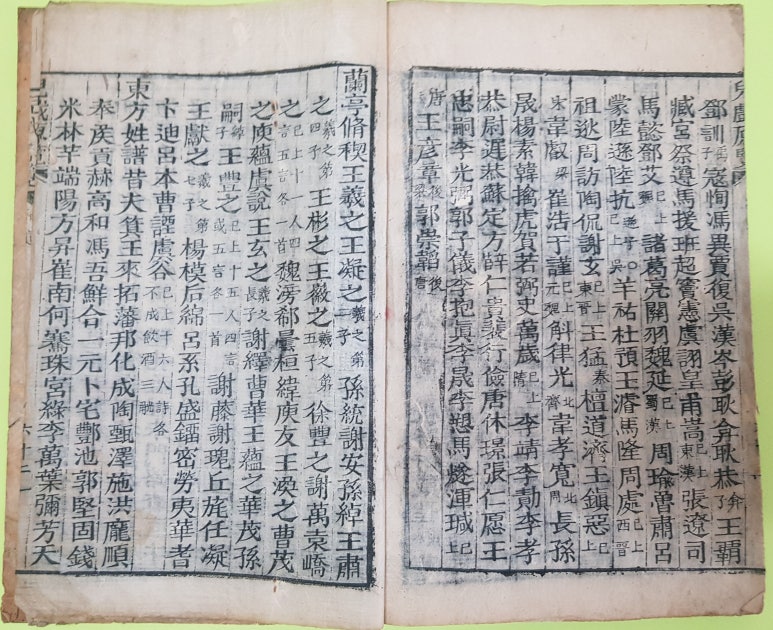 鄧訓禹子寇恂馮異賈復吳漢岑彭耿弇耿恭弇子王霸
臧宮祭遵馬援班超竇憲虞詡皇甫嵩已上東漢張遼司
馬懿鄧艾已上魏諸葛亮關羽魏延已上蜀漢周瑜魯肅呂
蒙陸遜陸抗遜子〇已上吳羊祜杜預王濬馬隆周處已上西晉
祖逖周訪陶侃謝玄已上東晉王猛秦檀道濟王鎮惡已上
宋韋叡梁崔浩于謹已上元魏斛律光北齊韋孝寬北周長孫
晟楊素韓擒虎賀若弼史萬歲已上隋李靖李勣李孝
恭尉遲恭蘇定方薛仁貴裴行儉唐休璟張仁愿王
忠嗣李光弼郭子儀李抱眞李晟李愬馬燧渾瑊已上
唐王彦章後梁郭崇韜後唐
蘭亭脩稧王羲之王凝之羲之第二子孫統謝安孫綽王肅
之羲之第四子王彬之王徽之羲之第五子徐豐之謝萬袁嶠
之已上十一人四言五言各一首魏滂郗曇桓緯庾友王渙之曹茂
之庾蘊虞說王玄之羲之長子謝繹曹華王蘊之華茂孫
嗣綽子王豐之已上十五人四言或五言各一首謝藤謝瑰丘旄任凝
王獻之羲之第七子楊模后綿呂系孔盛鎦密勞夷華耆
卞迪呂本曹諲虞谷已上十六人詩各不成飮酒三觥
東方姓譜昔夫箕王來拓藩邦化成陶甄澤施洪龐順
奉貢赫高和馮吾鮮合一元卜宅酆池郭堅固錢
米林芊端陽方昇崔南何騫珠宮緣李萬葉彌芳天